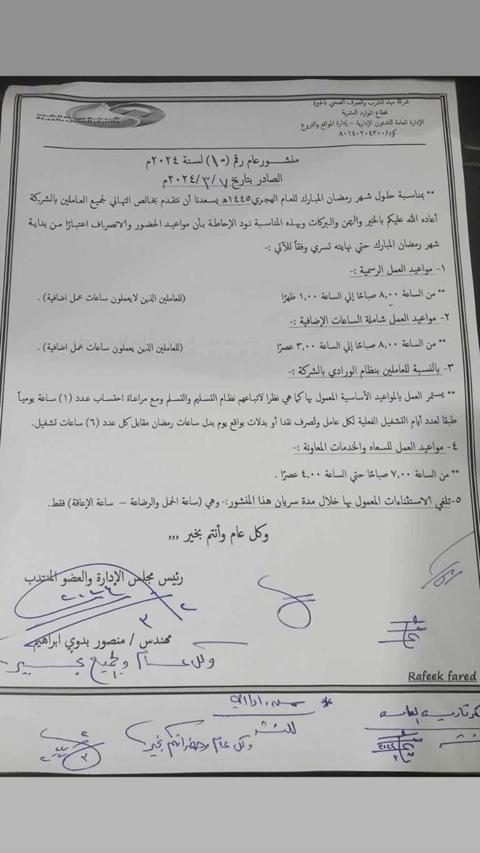 شركة مياه الشرب والصرف الصحي بالجيزة
قطاع الموارد البشرية
الإدارة العامة للشئون الإدارية – إدارة المواقع والفروع
كود/٨٠١٤٠٢٠٤٣٠٠
منشور عام رقم (١٠) لسنة ٢٠٢٤م
الصادر بتاريخ ٧/٣/٢٠٢٤م
** بمناسبة حلول شهر رمضان المبارك للعام الهجري ١٤٤٥هـ يسعدنا أن نتقدم بخالص التهاني لجميع العاملين بالشركة
أعاده الله عليكم بالخير واليمن والبركات وبهذه المناسبة نود الإحاطة بأن مواعيد الحضور والانصراف اعتبارًا من بداية
شهر رمضان المبارك حتي نهايته تسري وفقاً للآتي :-
١- مواعيد العمل الرسمية :-
** من الساعة ٨,٠٠ صباحًا إلي الساعة ١,٠٠ ظهرًا (للعاملين الذين لايعملون ساعات عمل اضافية) .
٢- مواعيد العمل شاملة الساعات الإضافية :-
** من الساعة ٨,٠٠ صباحًا إلي الساعة ٣,٠٠ عصرًا (للعاملين الذين يعملون ساعات عمل اضافية) .
٣- بالنسبة للعاملين بنظام الورادي بالشركة :-
** يستمر العمل بالمواعيد الأساسية المعمول بها كما هي نظرا لاتباعهم نظام التسليم والتسلم ومع مراعاة احتساب عدد (١) ساعة يومياً
طبقا لعدد أيام التشغيل الفعلية لكل عامل وتصرف نقدا أو بدلات بواقع يوم بدل ساعات رمضان مقابل كل عدد (٦) ساعات تشغيل.
٤- مواعيد العمل للسعاه والخدمات المعاونة :-
** من الساعة ٧,٠٠ صباحًا حتي الساعة ٤,٠٠ عصرًا .
٥- تلغي الاستثناءات المعمول بها خلال مدة سريان هذا المنشور:- وهي (ساعة الحمل والرضاعة – ساعة الإعاقة) فقط.
وكل عام وأنتم بخير ,,,
رئيس مجلس الإدارة والعضو المنتدب
مهندس / منصور بدوي ابراهيم
وكل عام والجميع بخير
Rafeek fared
للنشر
وكل عام وحضراتكم بخير